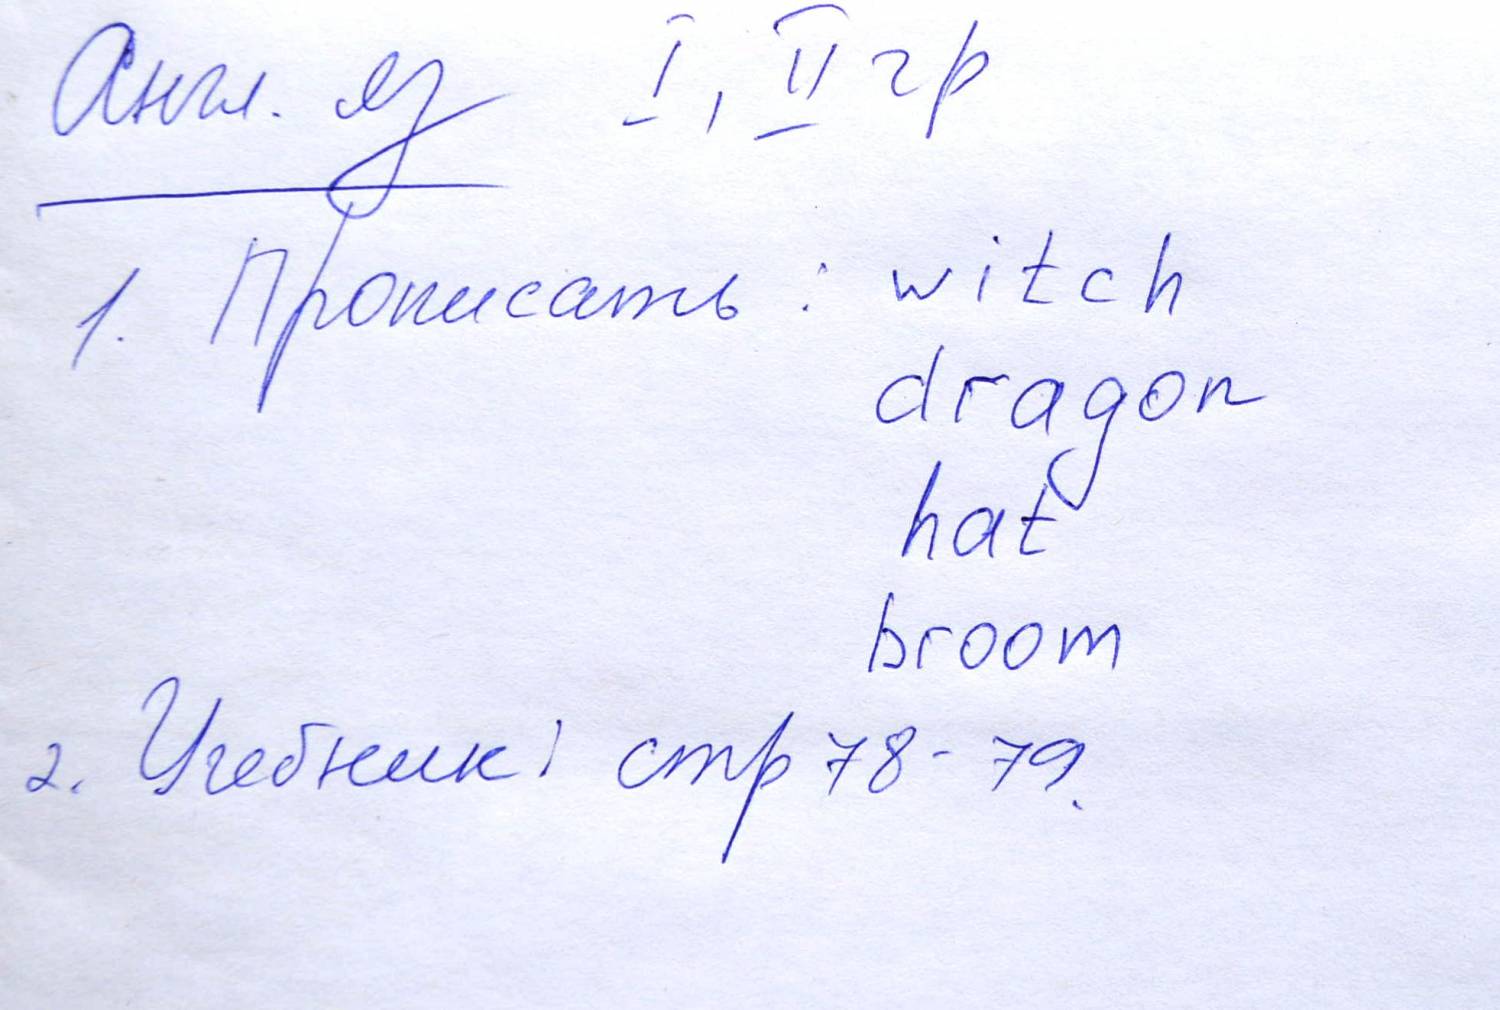 Англ. яз I, II гр
1. Прописать: witch
dragon
hat
broom
2. Учебник: стр 78-79.